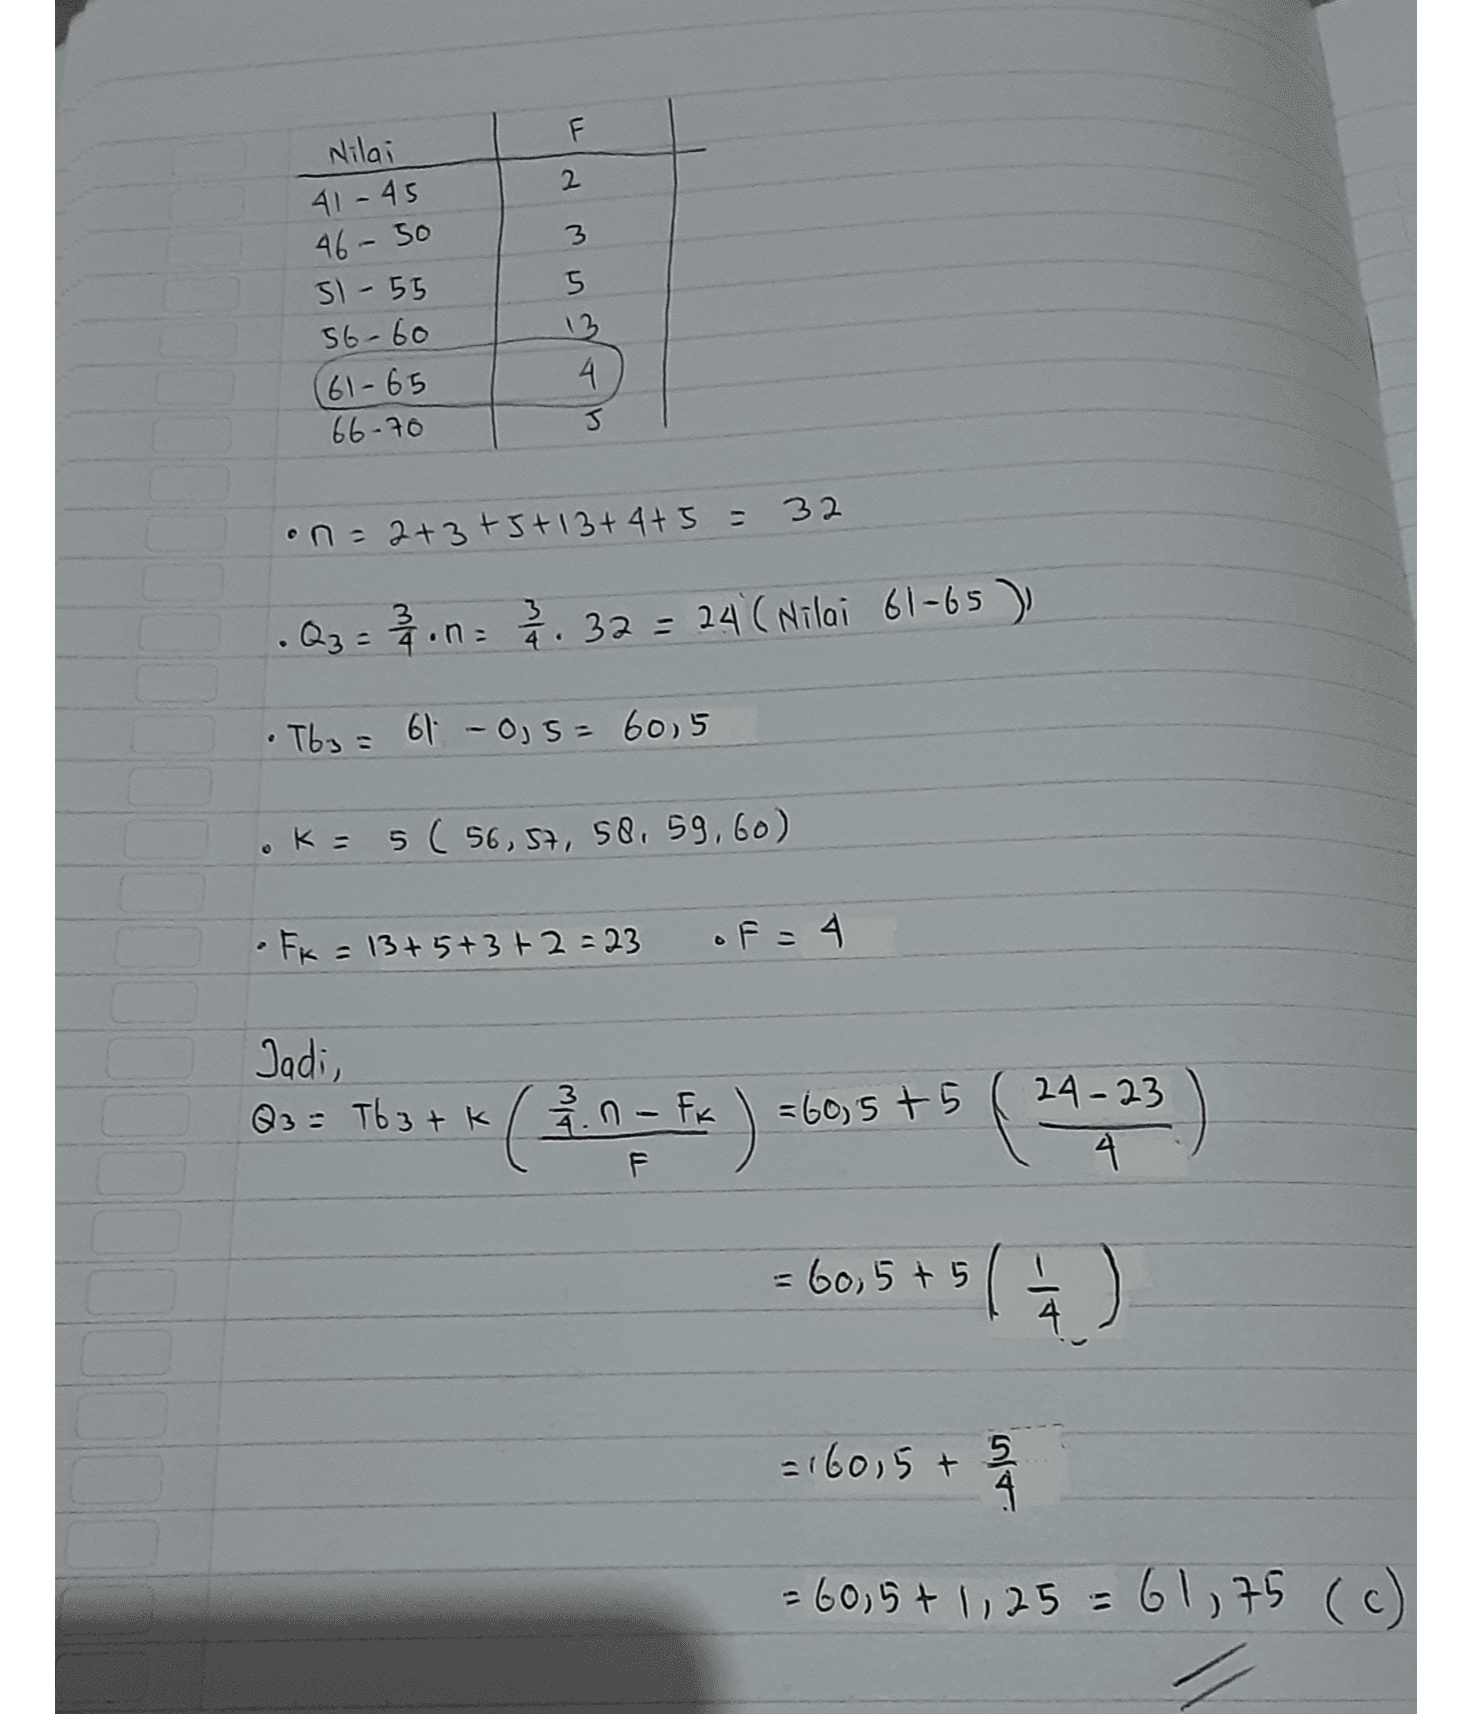 Nilai F
41-45 2
46-50 3
51-55 5
56-60 13
61-65 4
66-70 5
• n = 2+3+5+13+4+5 = 32
• Q3 = 3/4 . n = 3/4 . 32 = 24 (Nilai 61-65)
• Tb3 = 61 - 0,5 = 60,5
• K = 5 (56, 57, 58, 59, 60)
• FK = 13+5+3+2 = 23 • F = 4
Jadi,
Q3 = Tb3 + K ( (3/4 . n - FK) / F ) = 60,5 + 5 ( (24-23) / 4 )
= 60,5 + 5 ( 1/4 )
= 60,5 + 5/4
= 60,5 + 1,25 = 61,75 (c)